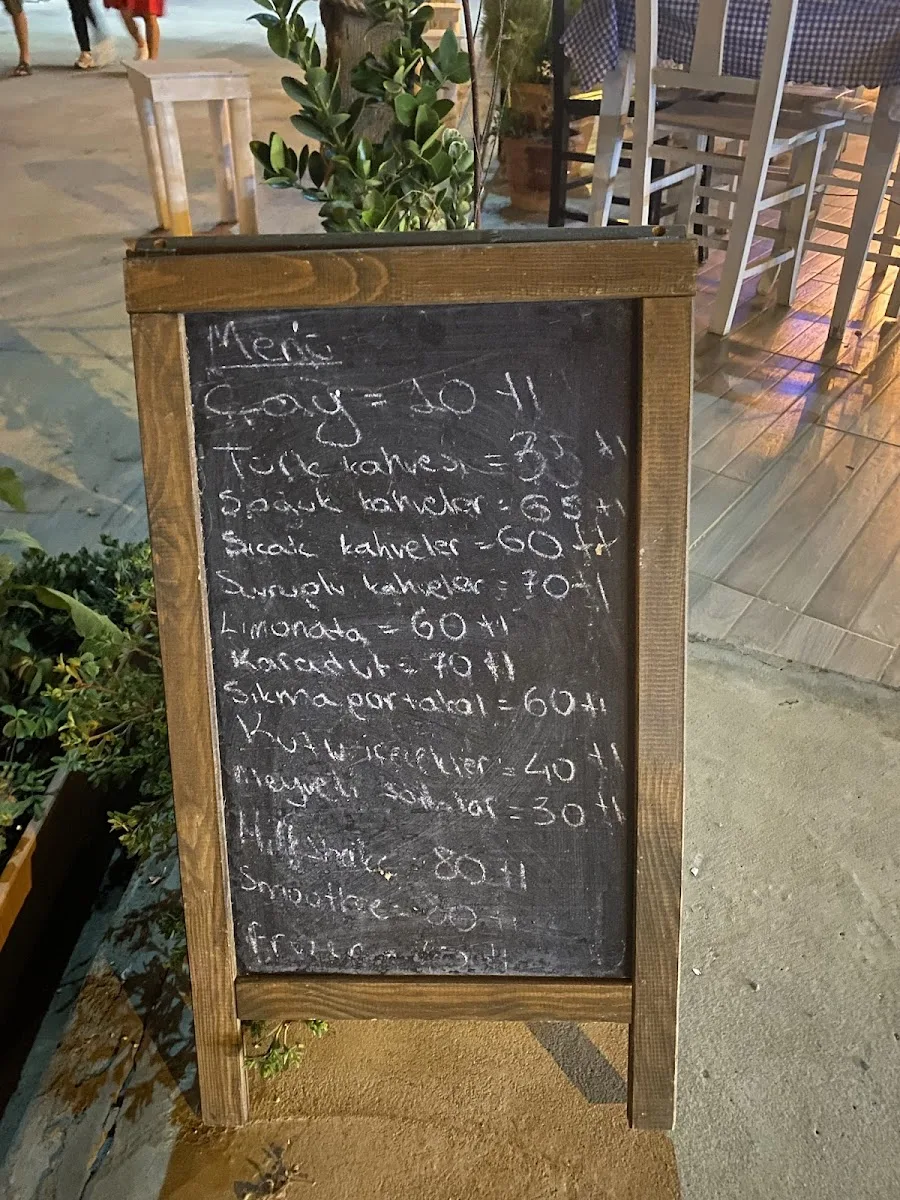 Menü
Çay = 10 tl
Türk kahvesi = 35 tl
Soğuk kahveler = 65 tl
Sıcak kahveler = 60 tl
Şuruplu kahveler = 70 tl
Limonata = 60 tl
Karadut = 70 tl
Sıkma portakal = 60 tl
Kutu içecekler = 40 tl
Meyveli sodalar = 30 tl
Milkshake = 80 tl
Smoothie = 80 tl
Frozen